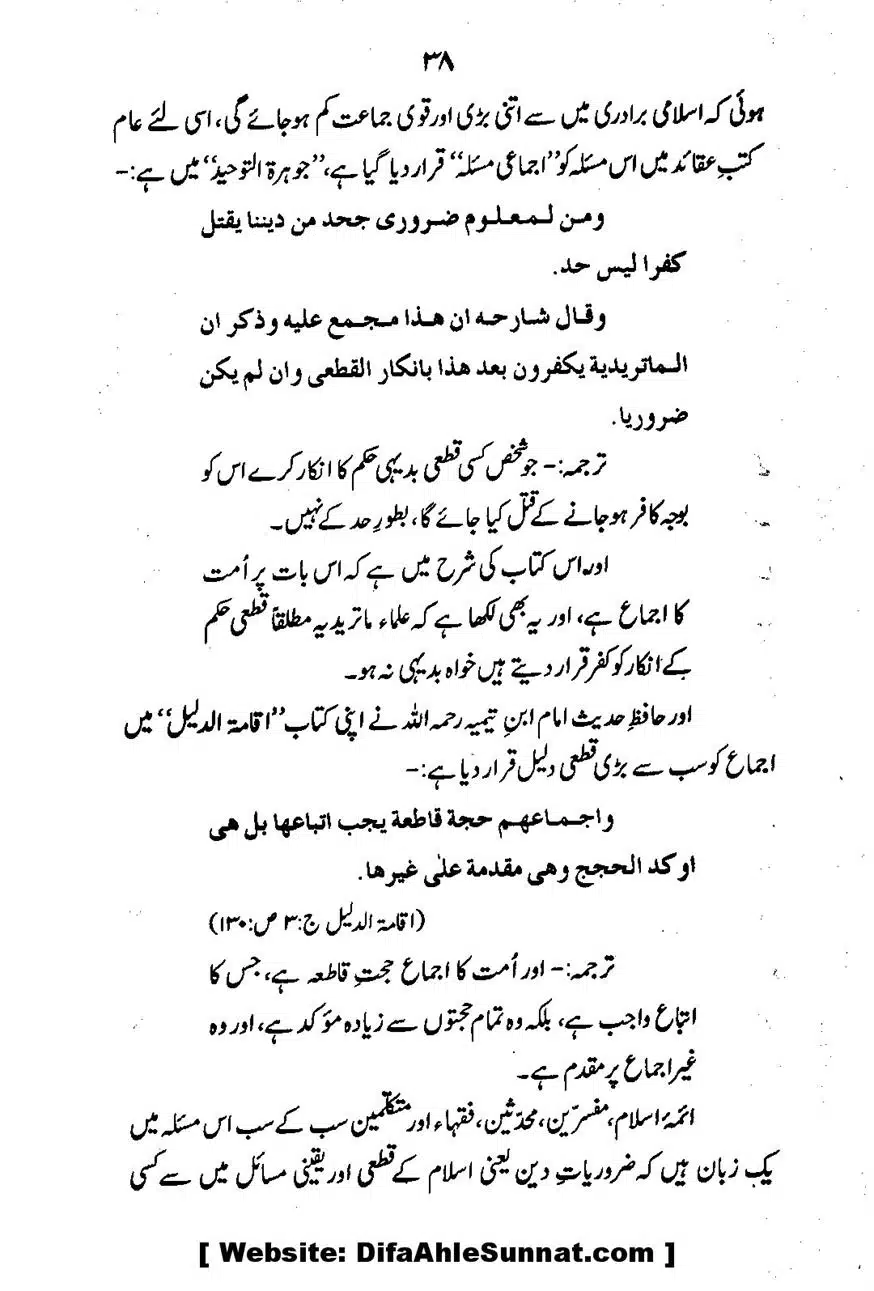 ۳۸
ہوئی کہ اسلامی برادری میں سے اتنی بڑی اور قوی جماعت کم ہوجائے گی، اسی لئے عام
کتبِ عقائد میں اس مسئلہ کو ’’اجماعی مسئلہ‘‘ قرار دیا گیا ہے، ’’جوہرۃ التوحید‘‘ میں ہے:-
ومن لمعلوم ضروری جحد من دیننا یقتل
کفرا لیس حد.
وقال شارحه ان هذا مجمع علیه وذکر ان
الماتریدیة یکفرون بعد هذا بانکار القطعی وان لم یکن
ضروریا.
ترجمہ:- جو شخص کسی قطعی بدیہی حکم کا انکار کرے اس کو
بوجہ کافر ہوجانے کے قتل کیا جائے گا، بطورِ حد کے نہیں۔
اور اس کتاب کی شرح میں ہے کہ اس بات پر اُمت
کا اجماع ہے، اور یہ بھی لکھا ہے کہ علماء ماتریدیہ مطلقاً قطعی حکم
کے انکار کو کفر قرار دیتے ہیں خواہ بدیہی نہ ہو۔
اور حافظِ حدیث امام ابنِ تیمیہ رحمہ اللہ نے اپنی کتاب ’’اقامۃ الدلیل‘‘ میں
اجماع کو سب سے بڑی قطعی دلیل قرار دیا ہے:-
واجماعهم حجة قاطعة یجب اتباعها بل هی
اوکد الحجج وهی مقدمة علیٰ غیرها.
(اقامۃ الدلیل ج:۳ ص:۱۳۰)
ترجمہ:- اور اُمت کا اجماع حجتِ قاطعہ ہے، جس کا
اتباع واجب ہے، بلکہ وہ تمام حجتوں سے زیادہ مؤکد ہے، اور وہ
غیر اجماع پر مقدم ہے۔
ائمۂ اسلام، مفسرین، محدّثین، فقہاء اور متکلّمین سب کے سب اس مسئلہ میں
یک زبان ہیں کہ ضروریاتِ دین یعنی اسلام کے قطعی اور یقینی مسائل میں سے کسی
[ Website: DifaAhleSunnat.com ]